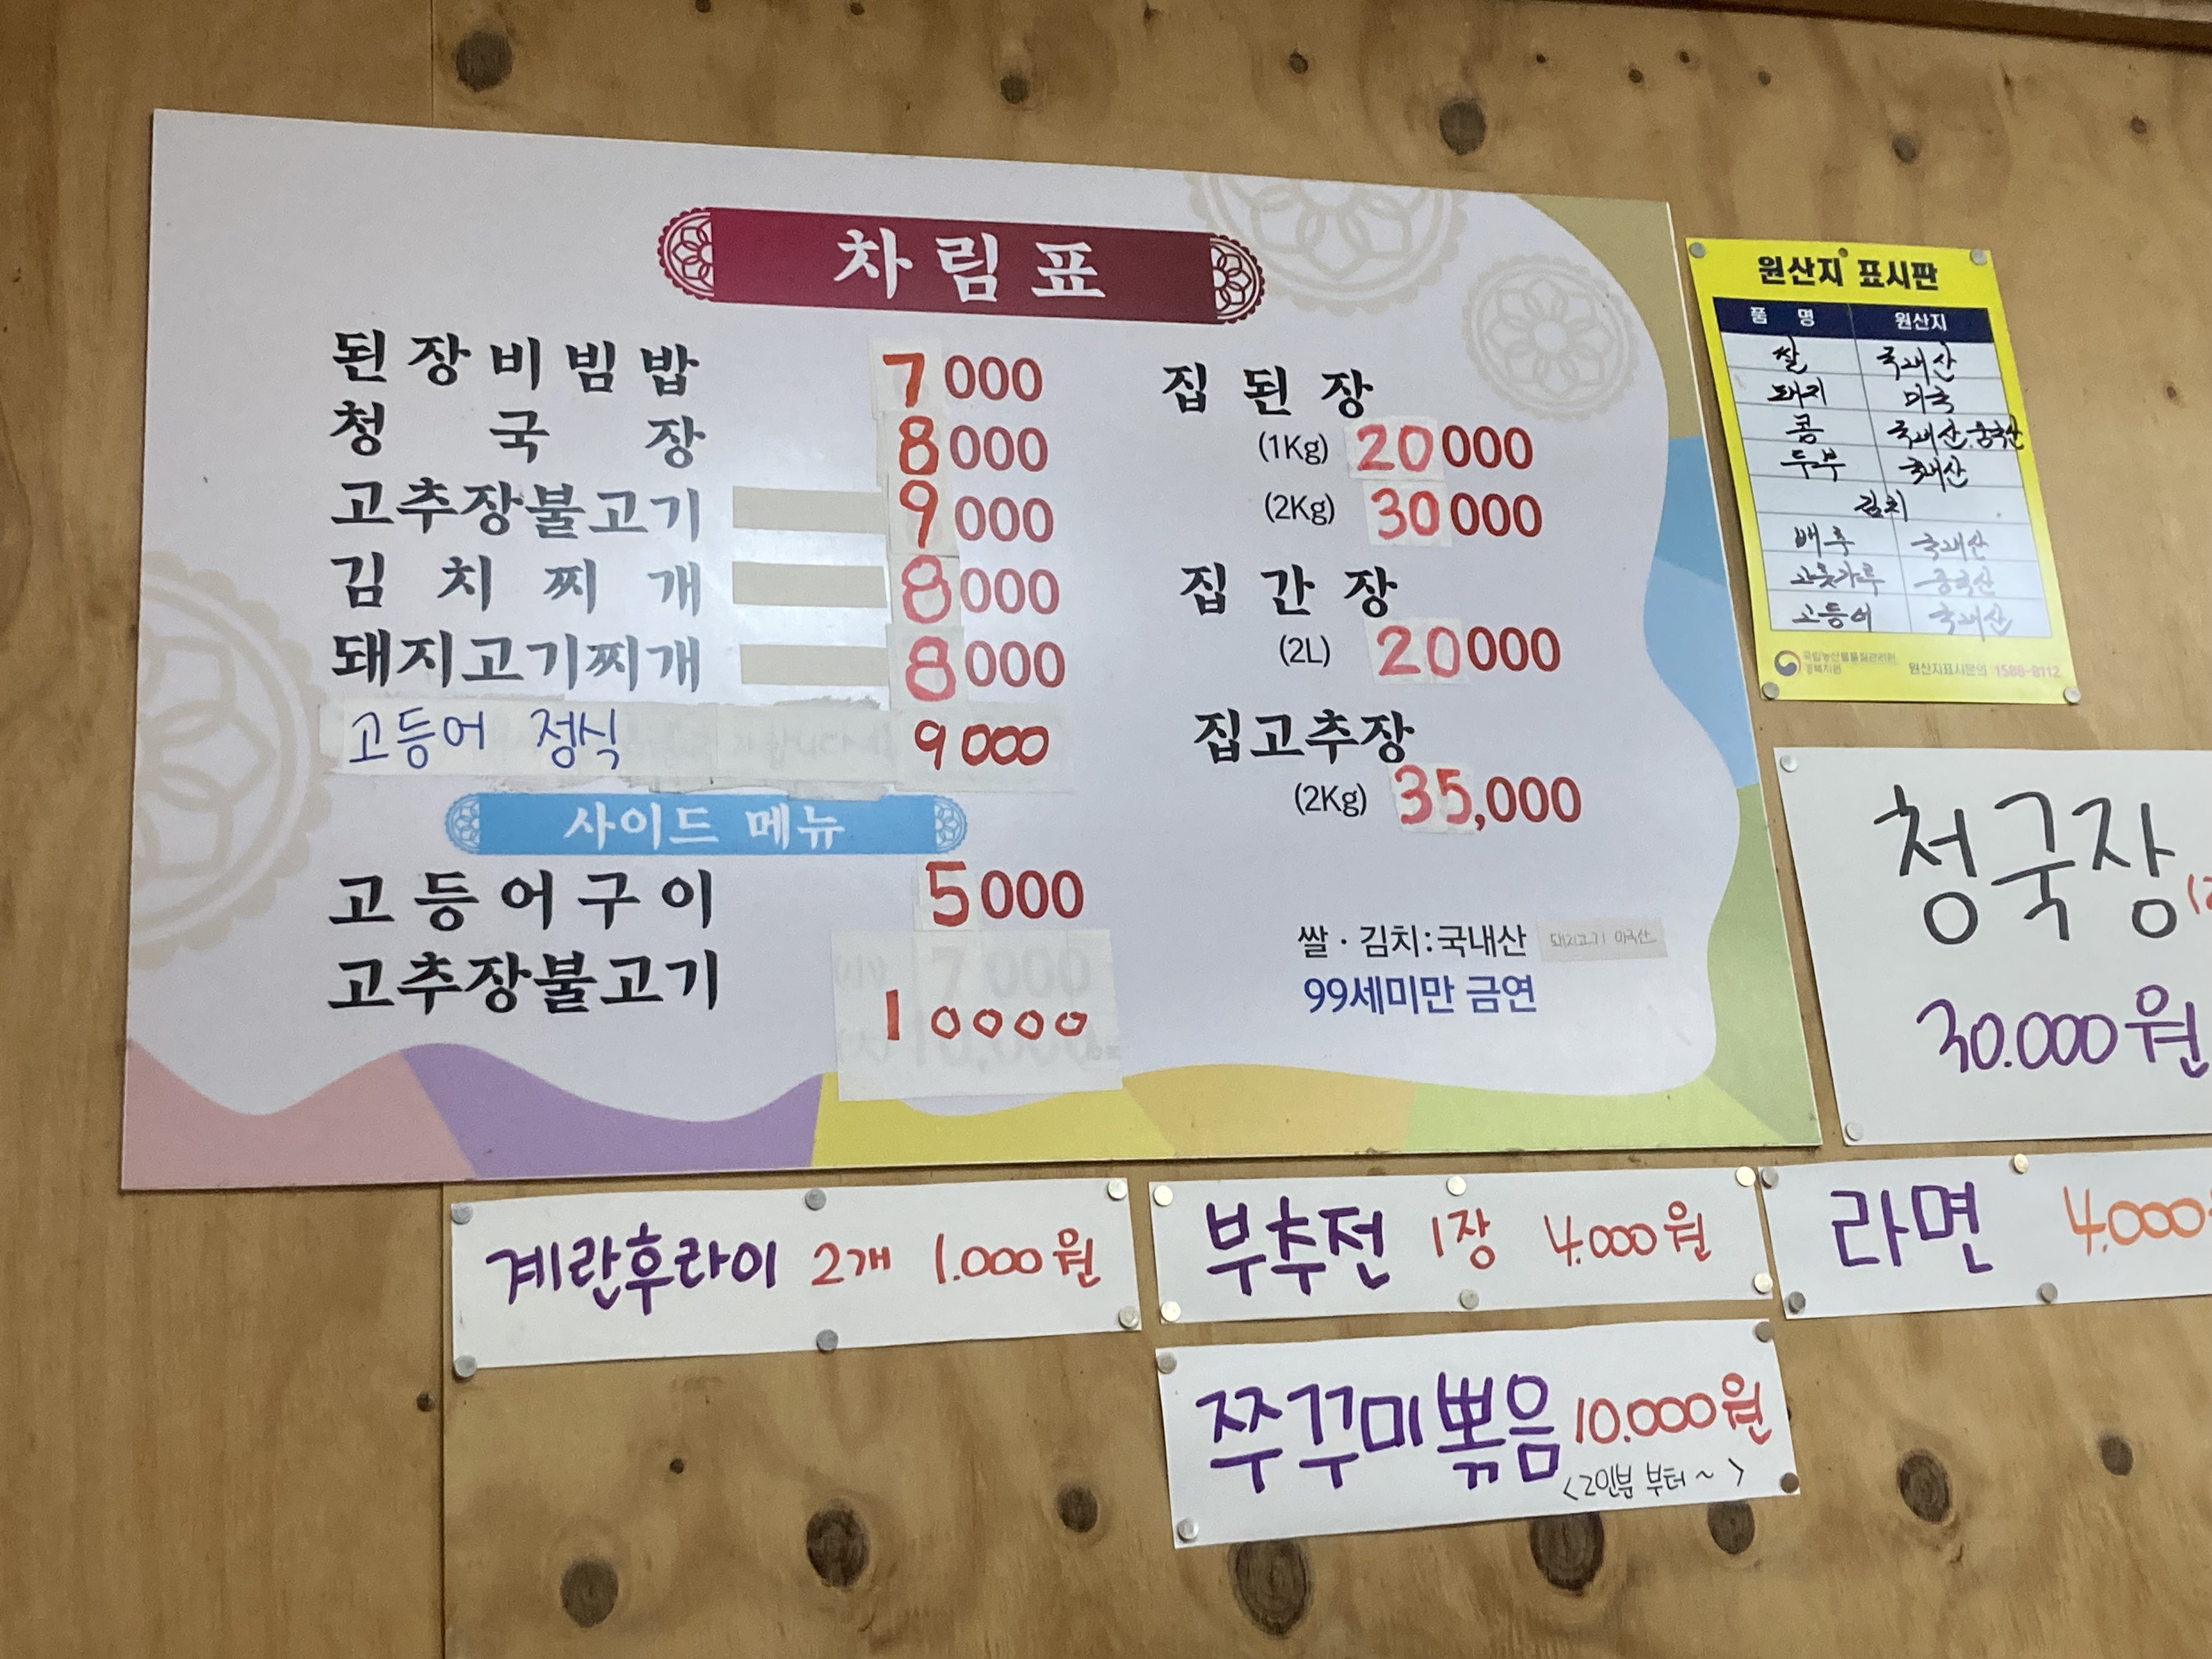 차림표
된장비빔밥 7000
청국장 8000
고추장불고기 9000
김치찌개 8000
돼지고기찌개 8000
고등어 정식 9000
사이드 메뉴
고등어구이 5000
고추장불고기 10000
집된장
(1Kg) 20000
(2Kg) 30000
집간장
(2L) 20000
집고추장
(2Kg) 35,000
쌀·김치:국내산 돼지고기 미국산
99세미만 금연
원산지 표시판
품명 원산지
쌀 국내산
돼지 미국
콩 국내산.중국산
두부 국내산
김치
배추 국내산
고춧가루 중국산
고등어 국내산
국립농산물품질관리원
경북지원
원산지표시문의 1588-8112
청국장
30.000원
계란후라이 2개 1.000원
부추전 1장 4.000원
라면 4.000
쭈꾸미볶음 10.000원
<2인분 부터~>